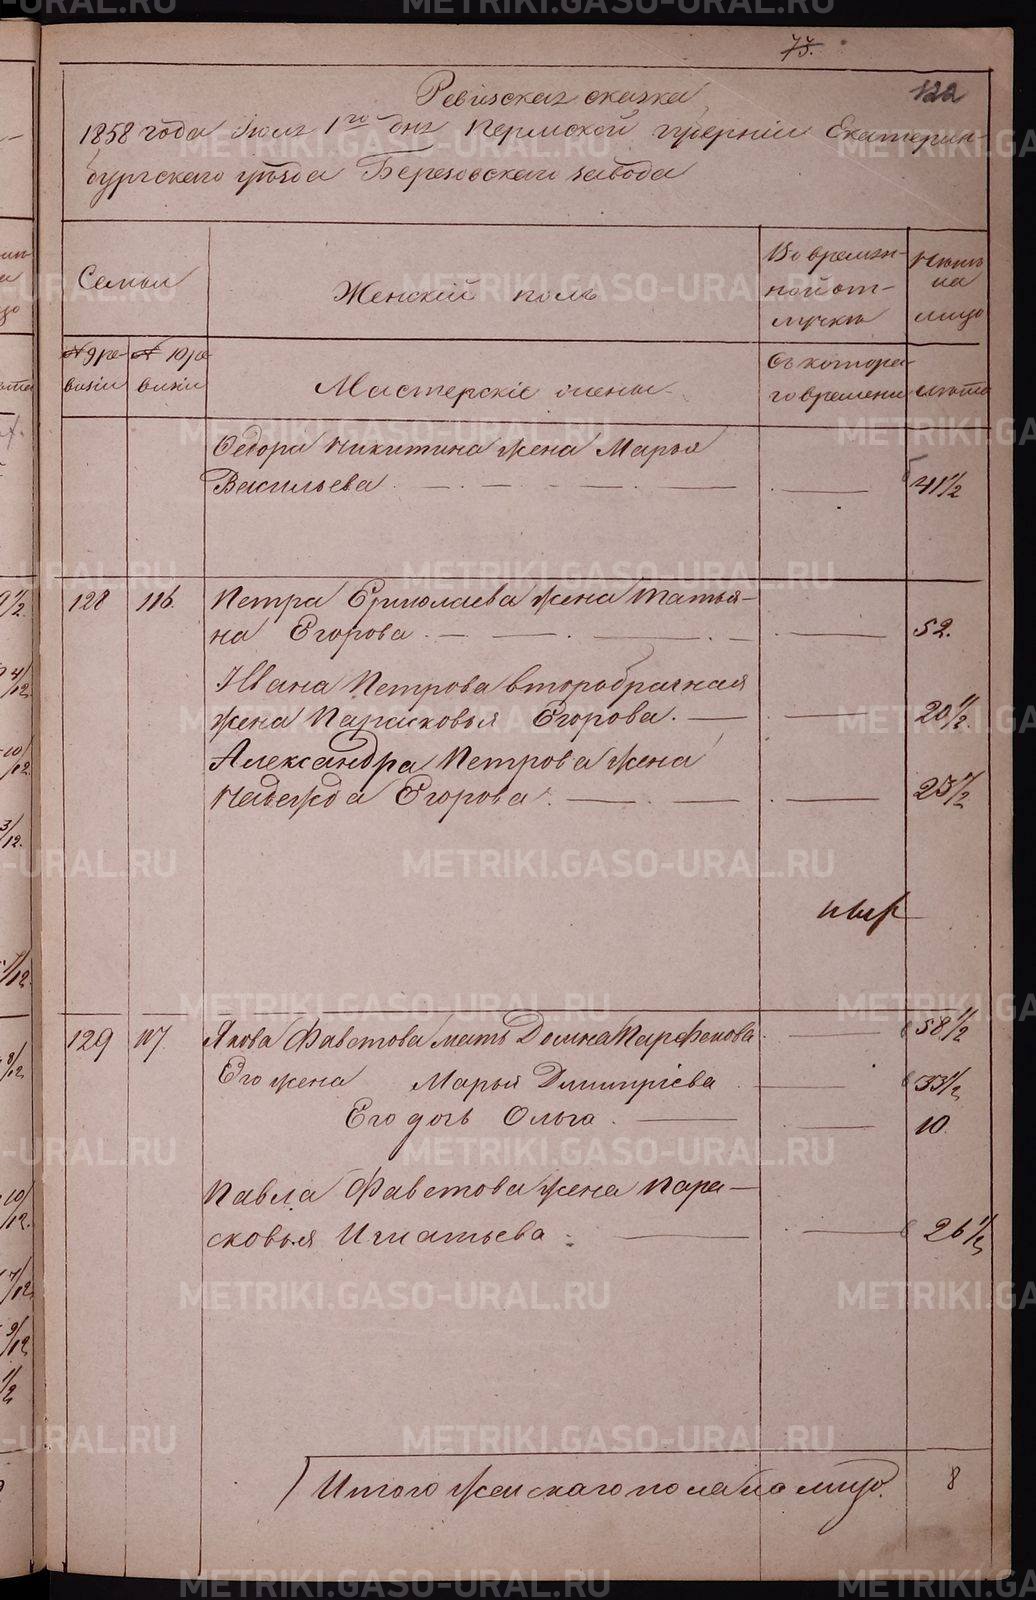 75.
122
Ревизская сказка
1858 года Июля 1го дня Пермской губернiи Екатерин-
бургскаго уѣзда Березовскаго завода
Семьи
Женскiй полъ
Во времян-
ной от-
лучкѣ
Нынѣ
на
лицо
№ 9 ре-
визiи
№ 10 ре-
визiи
Мастерскiе жены
Съ которо-
го времени
лѣта
Федора Никитина жена Марья
Васильева
41 1/2
128 116. Петра Ермолаева жена Татья-
на Егорова 52.
Ивана Петрова второбрачная
жена Парасковья Егорова. 20 1/2
Александра Петрова жена
Надежда Егорова. 25 1/2
129 117. Якова Фавстова мать Домна Парфенова 58 1/2
Его жена Марья Дмитрiева 33 1/2
Его дочь Ольга. 10
Павла Фавстова жена Пара-
сковья Игнатьева 26 1/2
Итого женскаго пола на лицо. 8
METRIKI.GASO-URAL.RU